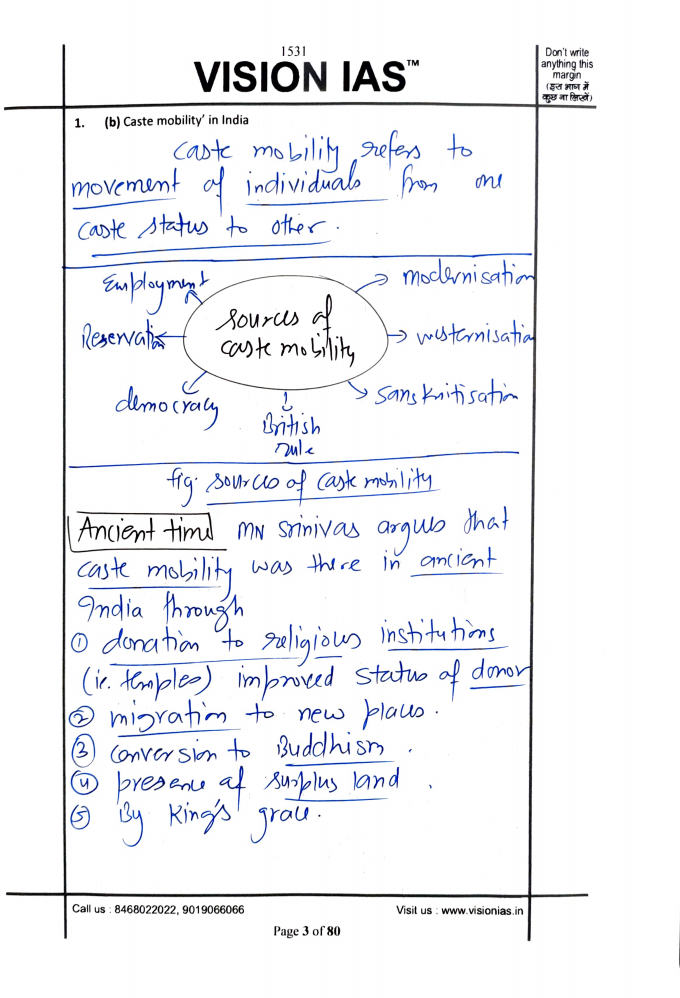 1531
VISION IAS™
Don't write
anything this
margin
(इस भाग में
कुछ ना लिखें)
1. (b) Caste mobility' in India
Caste mobility refers to
movement of individuals from one
caste status to other.
Employment
modernisation
sources of
caste mobility
Reservation
westernisation
democracy
British
rule
Sanskritisation
fig: sources of caste mobility
Ancient time MN Srinivas argues that
caste mobility was there in ancient
India through
① donation to religious institutions
(ie. temples) improved status of donor
② migration to new places.
③ conversion to Buddhism.
④ presence of surplus land.
⑤ By King's grace.
Call us : 8468022022, 9019066066
Visit us : www.visionias.in
Page 3 of 80